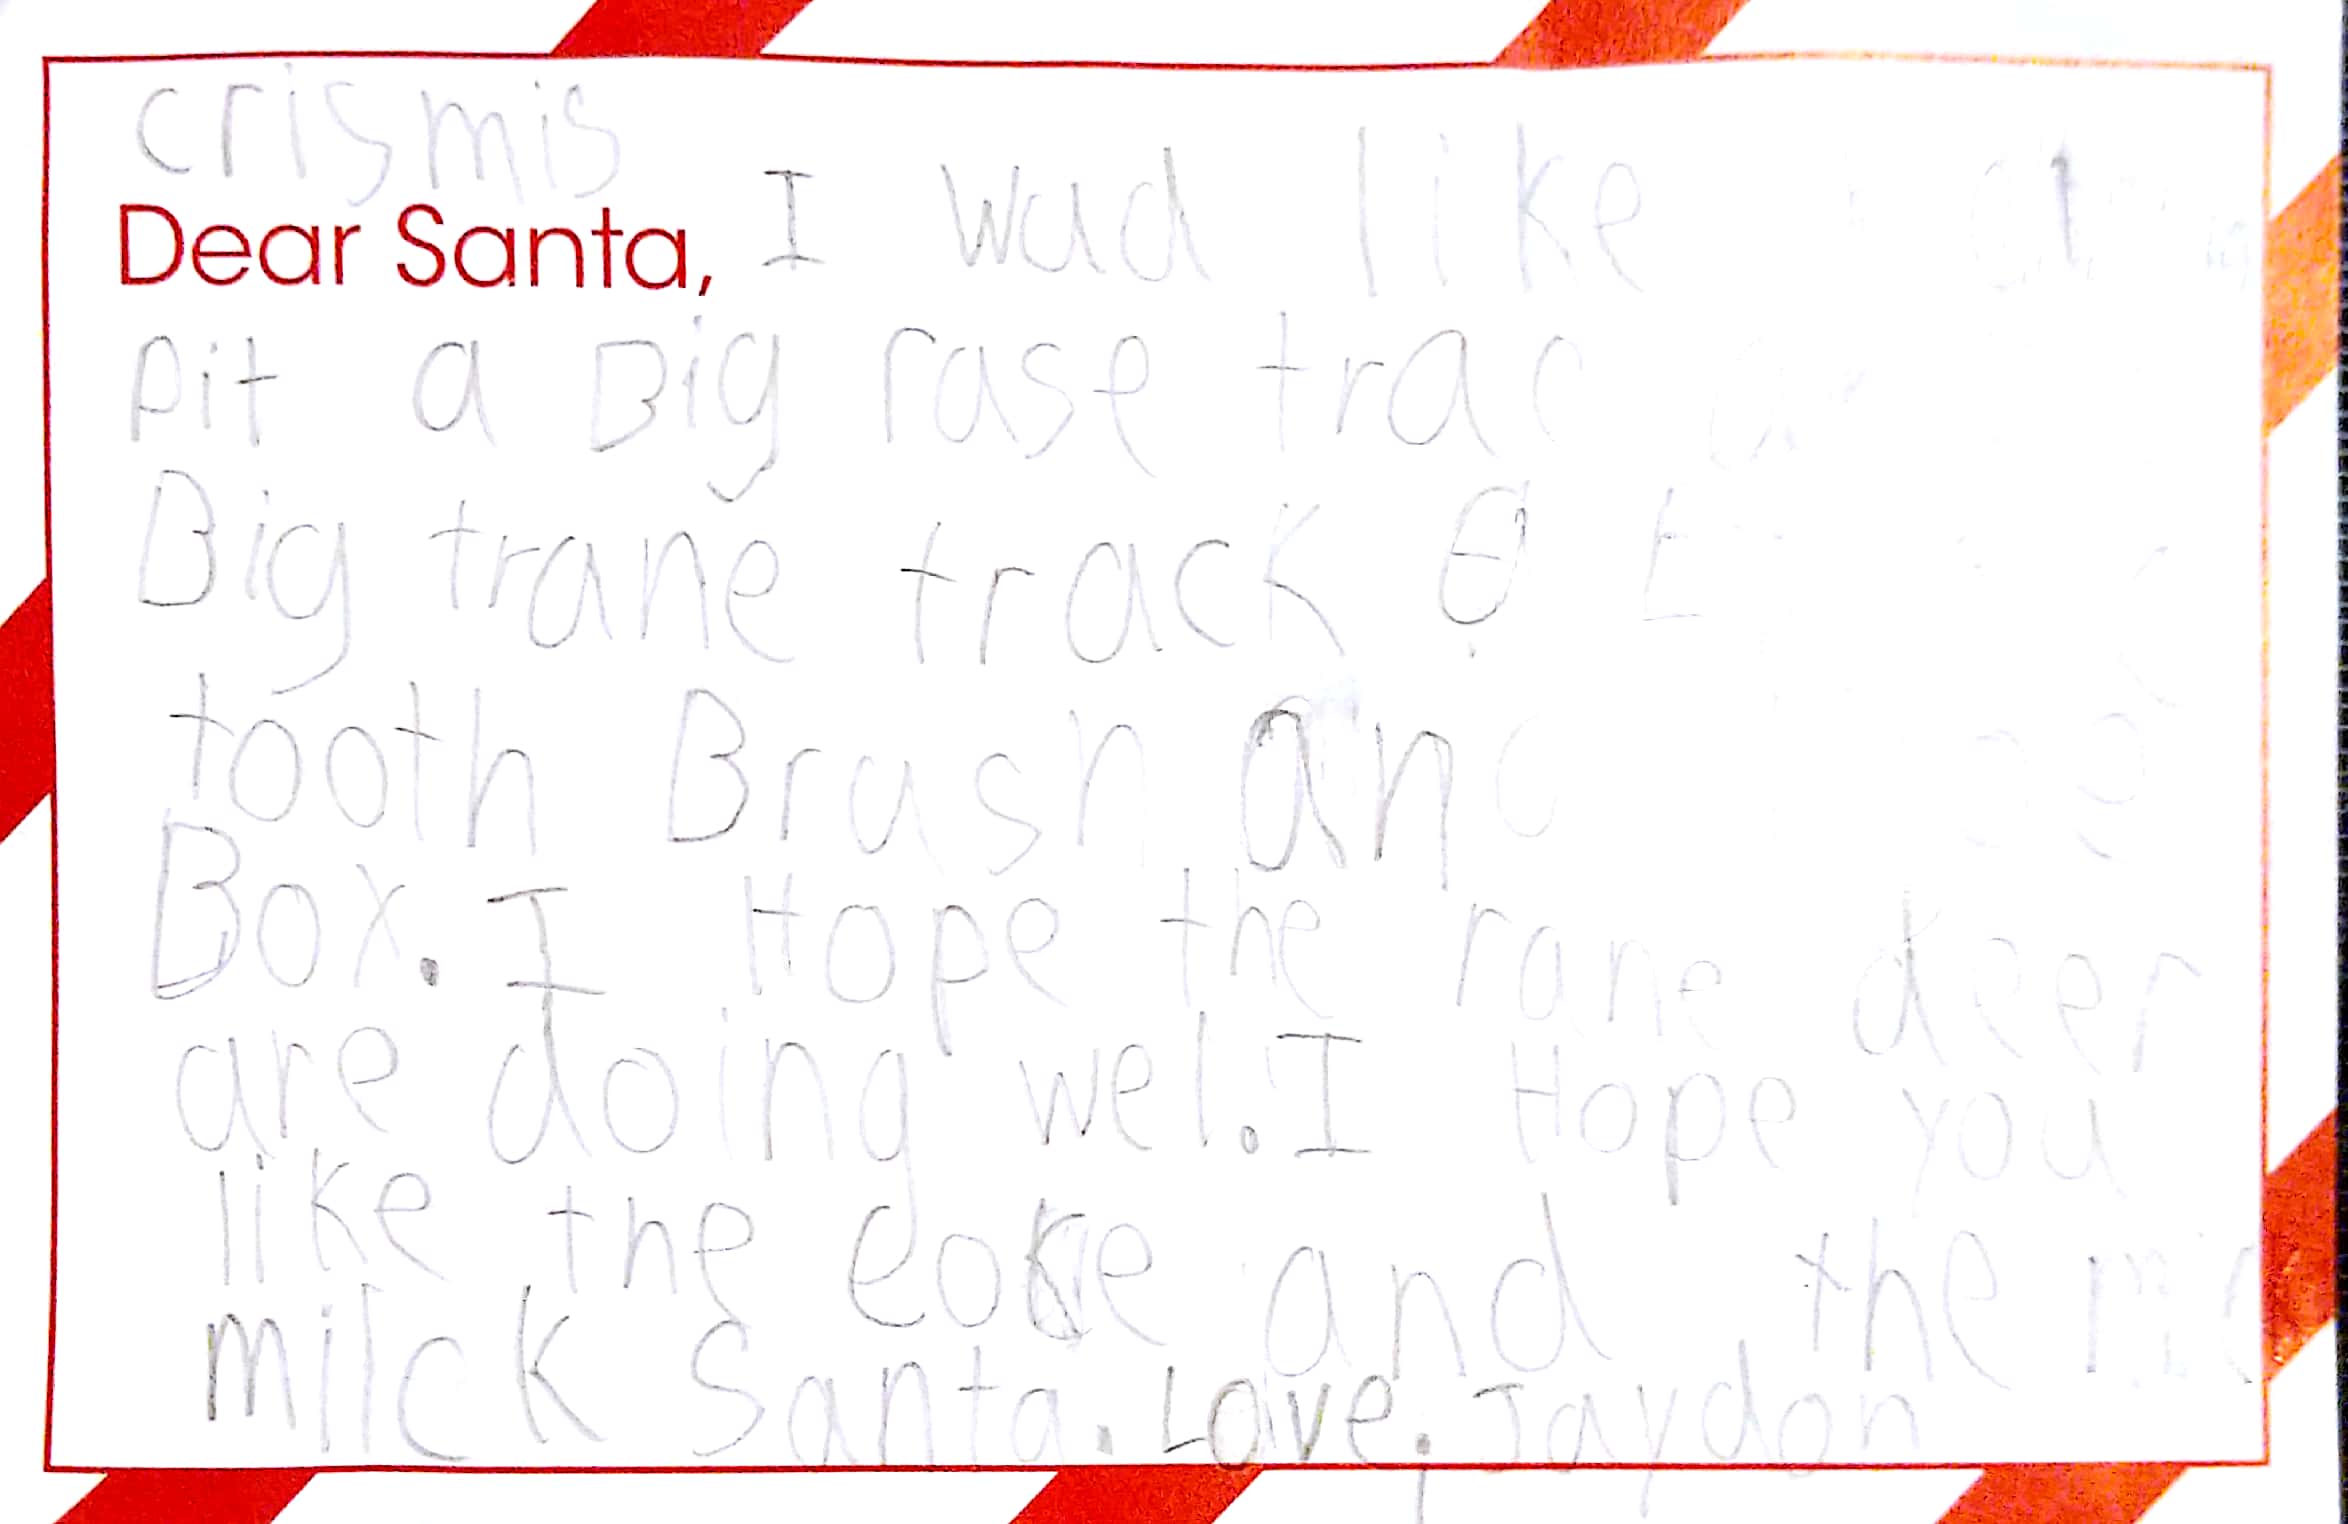 crismis
Dear Santa, I wud like
pit a Big rase trac
Big trane track
tooth Brush and
Box. I Hope the rane deer
are doing wel. I Hope you
like the coke and the
milck Santa. Love, Jaydon